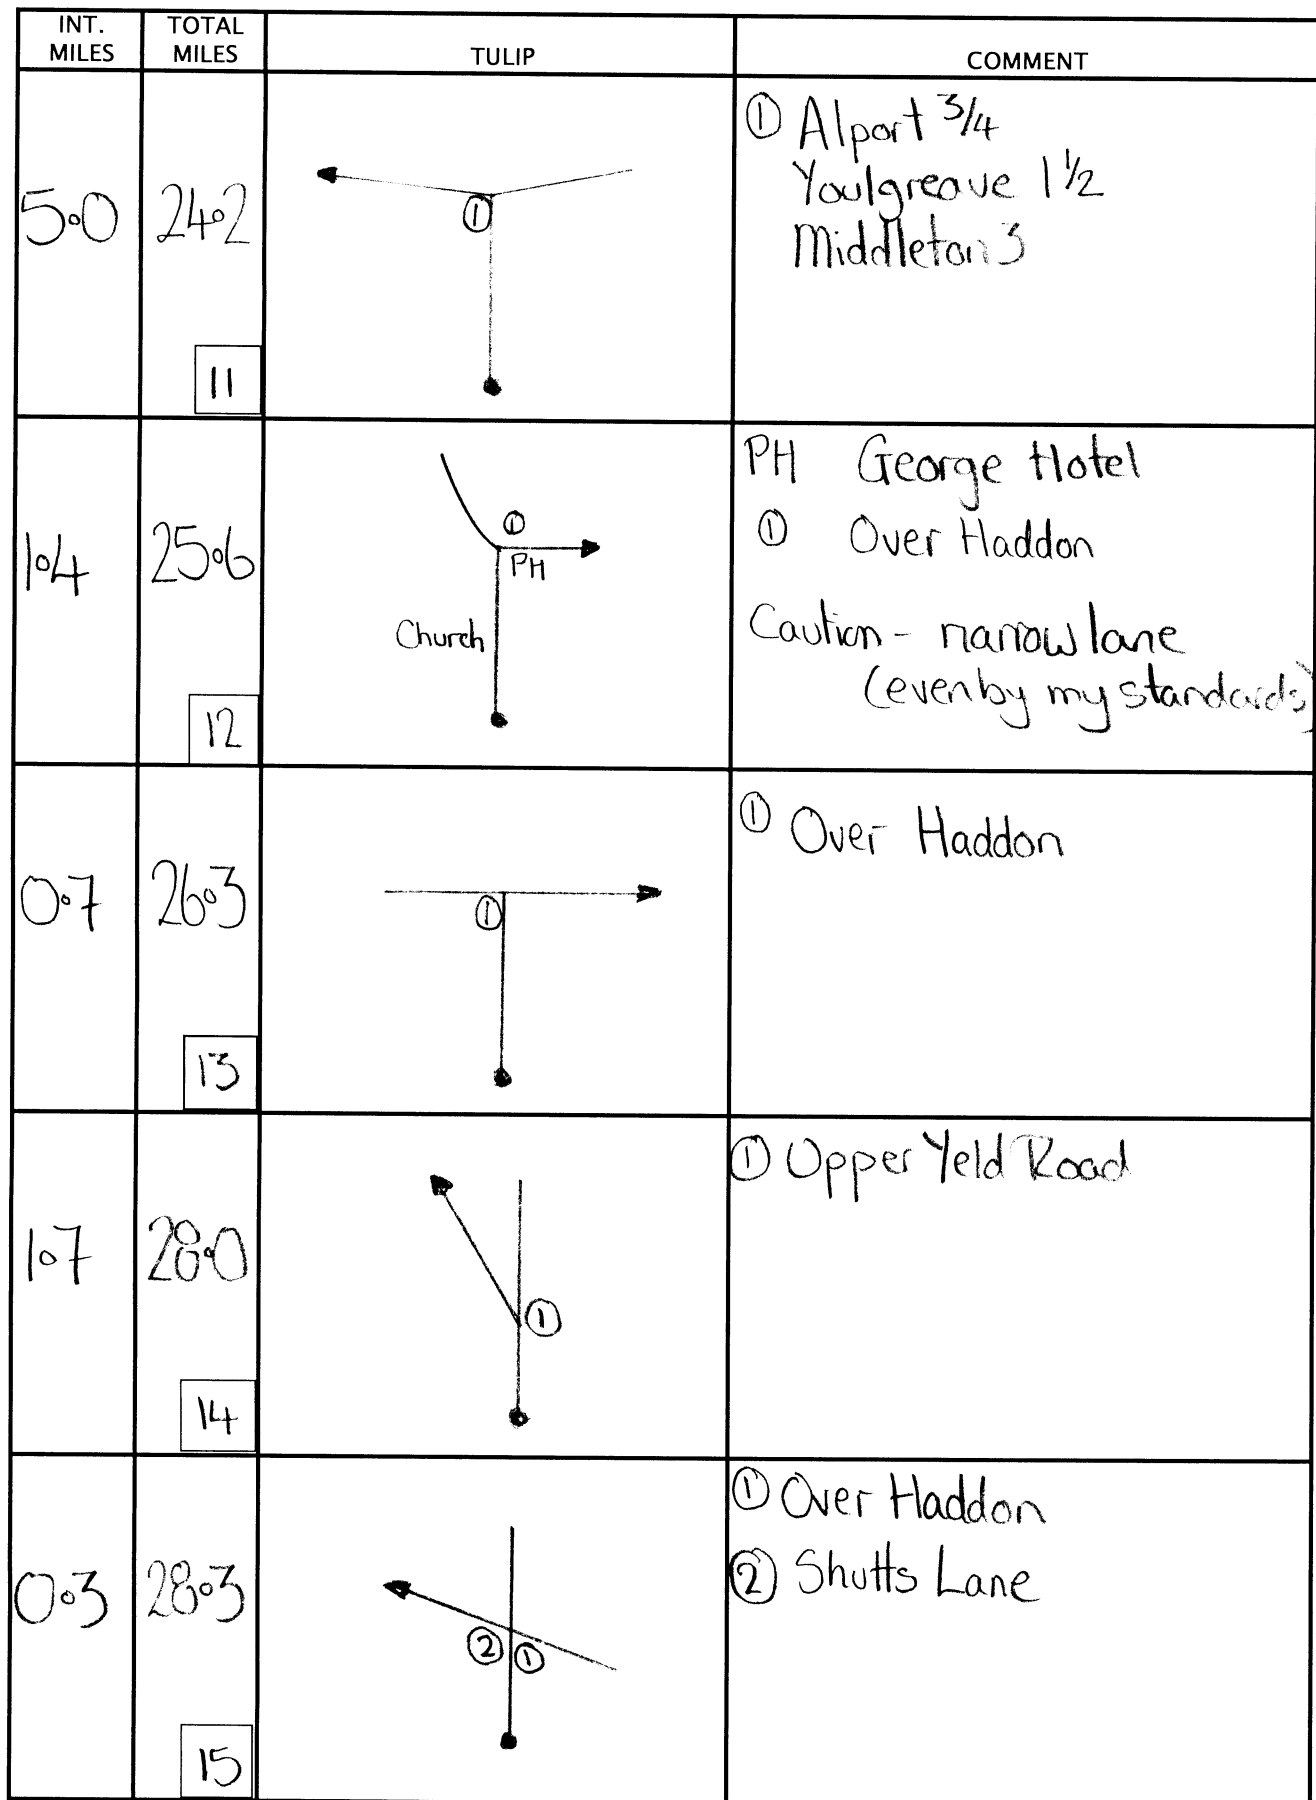 INT. MILES
TOTAL MILES
TULIP
COMMENT
5.0
24.2
11
①
① Alport 3/4
Youlgreave 1 1/2
Middleton 3
1.4
25.6
12
①
PH
Church
PH George Hotel
① Over Haddon
Caution - narrow lane
(even by my standards)
0.7
26.3
13
①
① Over Haddon
1.7
28.0
14
①
① Upper Yeld Road
0.3
28.3
15
② ①
① Over Haddon
② Shutts Lane